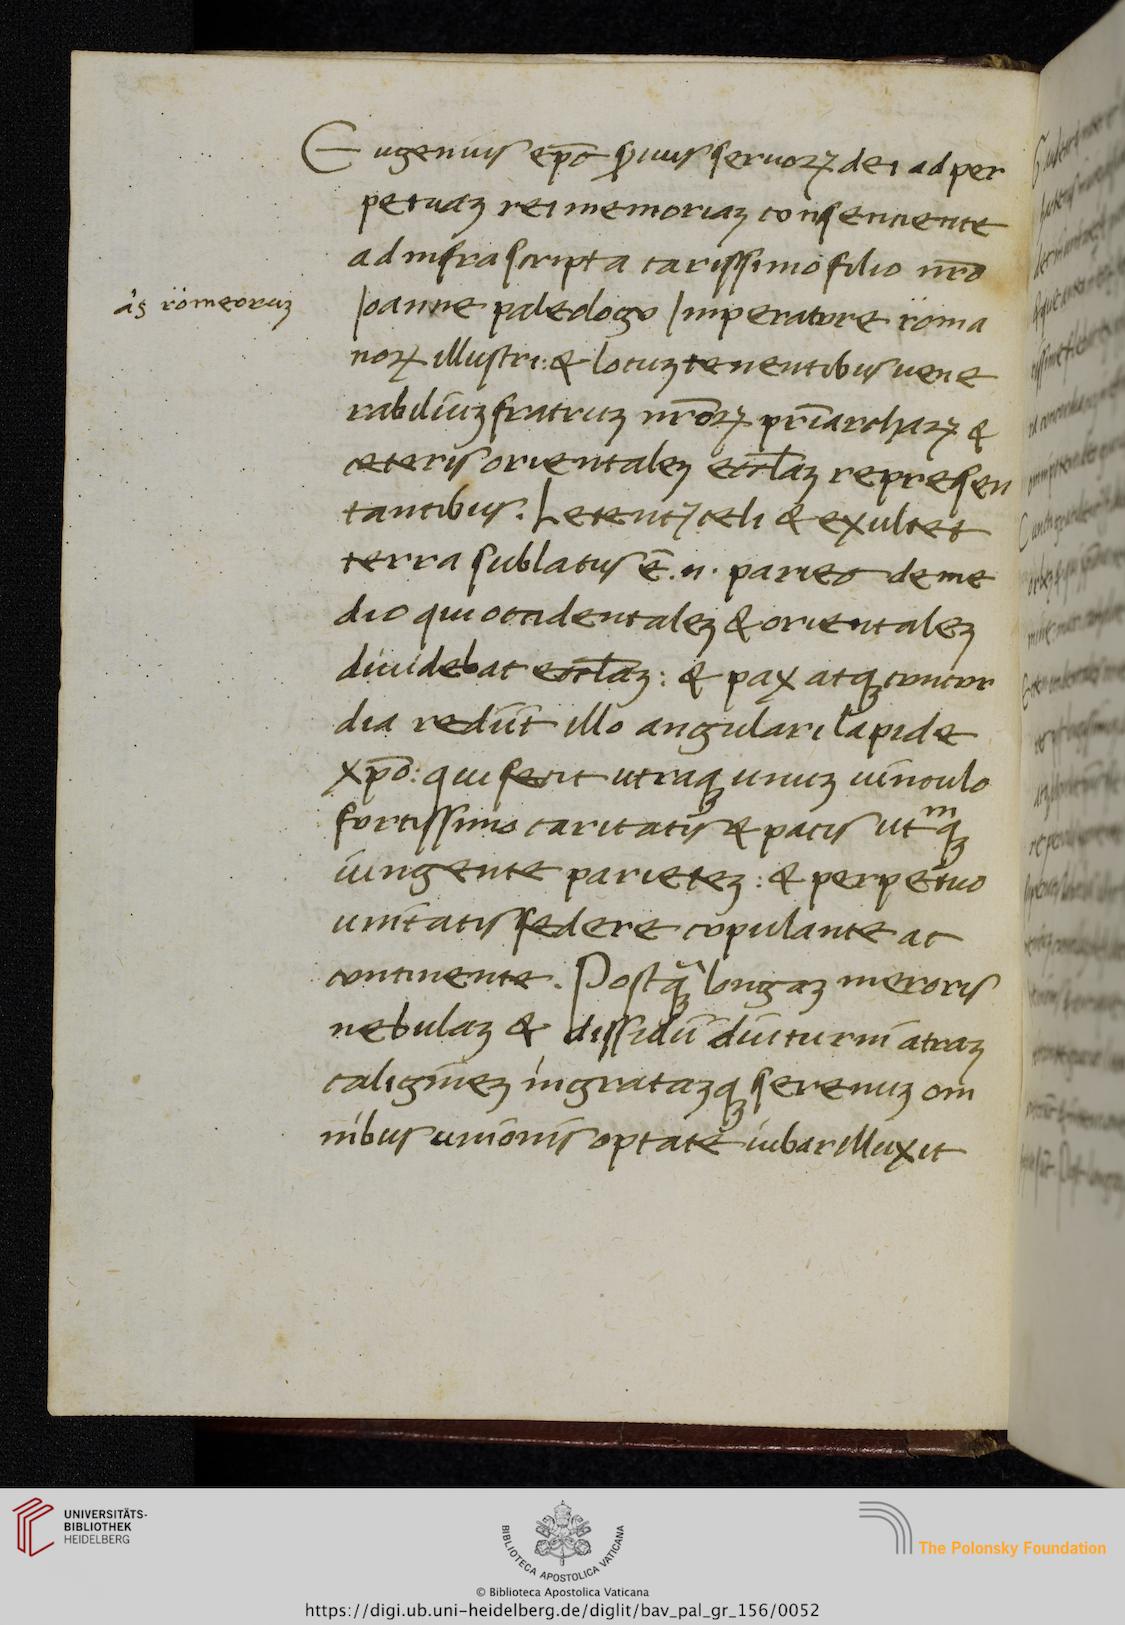 Eugenius ep̄s s̄uus seruoꝝ dei ad per
petuaꝫ rei memoriaꝫ consentiente
ad infrascripta carissimo filio nr̄o
as̓ romeoruꝫ
Joanne paleologo Imperatore roma
noꝝ illustri: & locuꝫtenentibus uene
rabiliuꝫ fratruꝫ nr̄oꝝ pr̄iarchaꝝ &
ceteris orientaleꝫ eccl̄aꝫ represen
tantibus. Letent᷑ celi & exultet
terra sublatus ē .n. paries de me
dio qui occidentaleꝫ & orientaleꝫ
diuidebat eccl̄aꝫ: & pax atqꝫ concor
dia rediit illo angulari lapide
xp̄o: qui fecit utraqꝫ unuꝫ uinculo
fortissimo caritatis & pacis utᵐqꝫ
iungente parieteꝫ: & perpetuo
unitatis federe copulante ac
continente. Postqꝫ̃ longaꝫ meroris
nebulaꝫ & dissidii diuturni atraꝫ
caligineꝫ ingrataꝫqꝫ serenuꝫ om
nibus unionis optate iubar illuxit
UNIVERSITÄTS-
BIBLIOTHEK
HEIDELBERG
BIBLIOTECA APOSTOLICA VATICANA
The Polonsky Foundation
© Biblioteca Apostolica Vaticana
https://digi.ub.uni-heidelberg.de/diglit/bav_pal_gr_156/0052